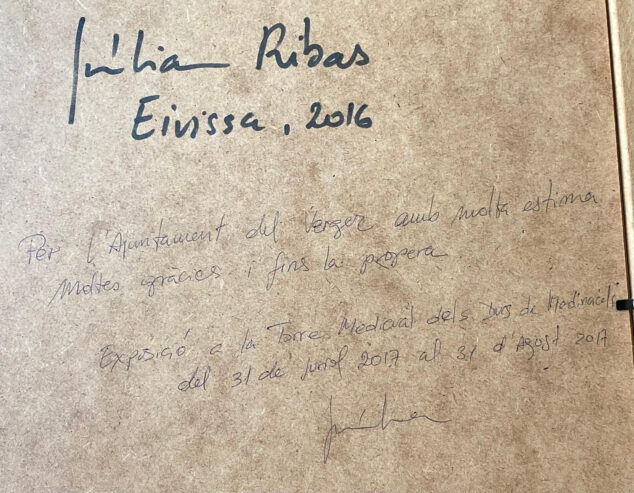 Júlia Ribas
Eivissa, 2016
Per l'Ajuntament del Verger amb molta estima
Moltes gràcies i fins la propera
Exposició a la Torre Medieval dels Ducs de Medinaceli
del 31 de Juriol 2017 al 31 d'Agost 2017
Júlia